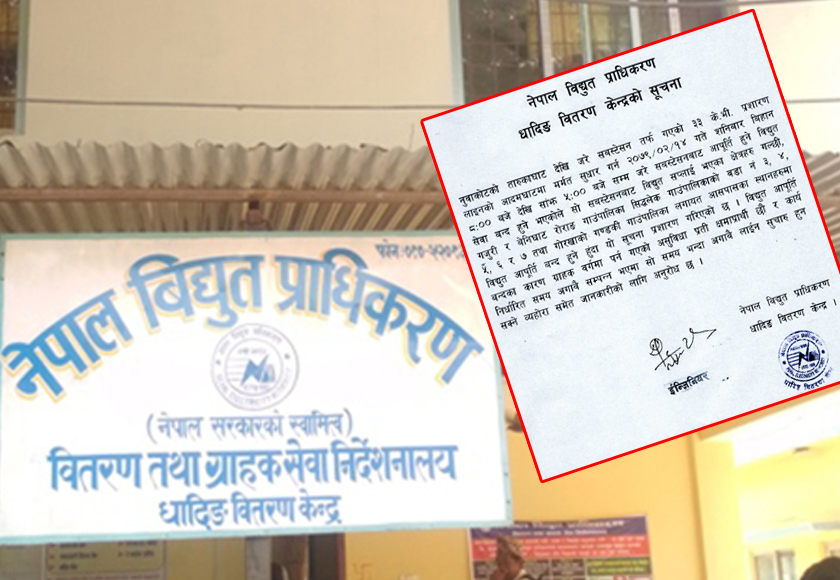 फोन: ०१०-५२०
नेपाल विद्युत प्राधिकरण
(नेपाल सरकारको स्वामित्व)
वितरण तथा ग्राहक सेवा निर्देशनालय
धादिङ वितरण केन्द्र
नेपाल विद्युत प्राधिकरण
धादिङ वितरण केन्द्रको सूचना
नुवाकोटको तारुकाघाट देखि जरे सबस्टेसन तर्फ गएको ३३ के.भी. प्रशारण
लाइनको आदमघाटमा मर्मत सुधार गर्न २०७९/०२/१४ गते शनिबार बिहान
८:०० बजे देखि साँझ ५:०० बजे सम्म जरे सबस्टेसनबाट आपूर्ति हुने विद्युत
सेवा बन्द हुने भएकोले सो सबस्टेसनबाट विद्युत सप्लाई भएका क्षेत्रहरु गल्छी,
गजुरी र बेनिघाट रोराङ गाउँपालिका सिद्धलेक गाउँपालिकाको वडा नं ३, ४,
५, ६ र ७ तथा गोरखाको गण्डकी गाउँपालिका लगायत आसपासका स्थानहरुमा
विद्युत आपूर्ति बन्द हुने हुंदा यो सूचना प्रशारण गरिएको छ । विद्युत आपूर्ति
बन्दका कारण ग्राहक वर्गमा पर्न गएको असुविधा प्रती क्षमाप्रार्थी छौं र कार्य
निर्धारित समय अगावै सम्पन्न भएमा सो समय भन्दा अगावै लाईन सुचारु हुन
सक्ने व्यहोरा समेत जानकारीको लागि अनुरोध छ ।
नेपाल विद्युत प्राधिकरण
धादिङ वितरण केन्द्र ।
ईन्जिनियर